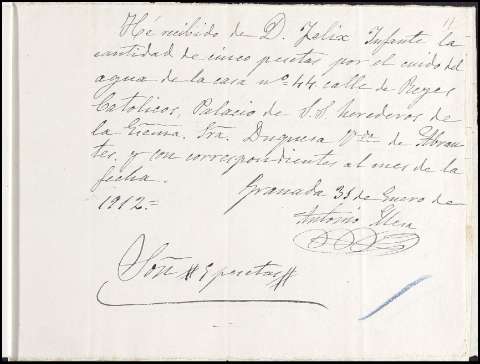 11
He recibido de D. Felix Infante la
cantidad de cinco pesetas por el cuido del
agua de la casa nº 44 calle de Reyes
Catolicos, Palacio de S. S. herederos de
la Excma. Sra. Duquesa Vda de Abran-
tes. y son correspondientes al mes de la
fecha.
Granada 31 de Enero de
1912.=
Antonio
Son # 5 pesetas #